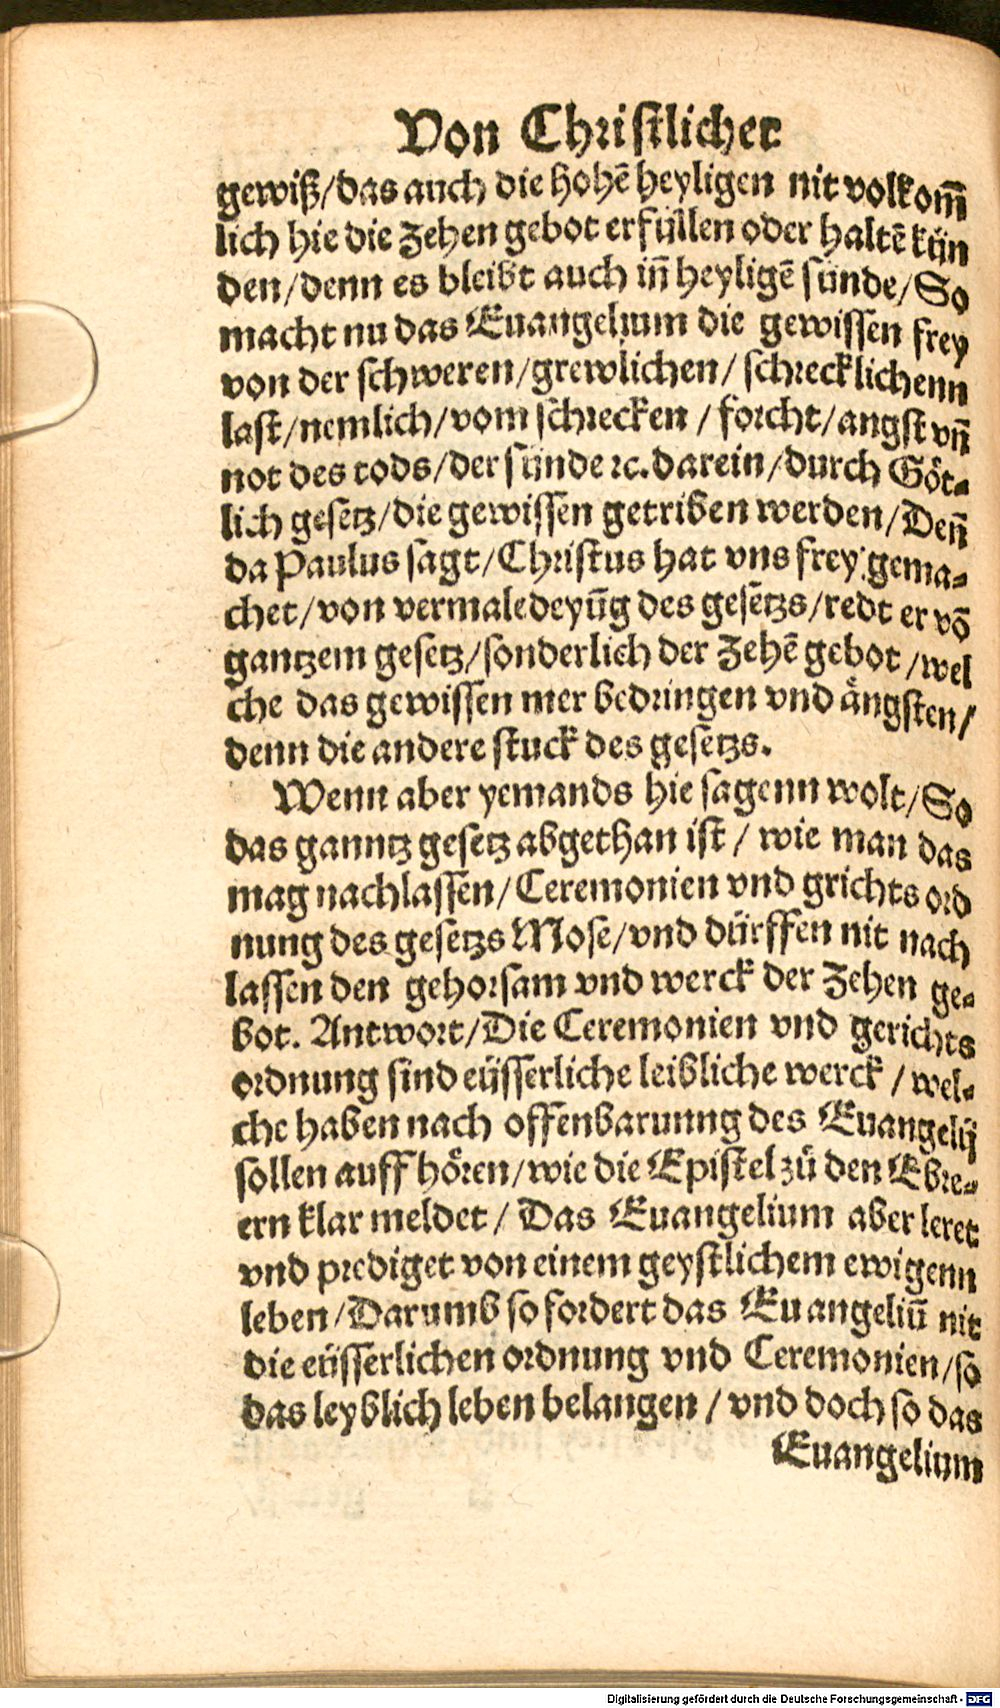 Von Christlicher
gewiß/das auch die hohẽ heyligen nit volkom̃
lich hie die Zehen gebot erfüllen oder haltẽ kün
den/denn es bleibt auch iñ heyligẽ sünde/So
macht nu das Euangelium die gewissen frey
von der schweren/grewlichen/ schrecklichenn
last/nemlich/vom schrecken / forcht/angst vñ
not des tods/der sünde ꝛc. darein/durch Göt-
lich gesetz/die gewissen getriben werden/Deñ
da Paulus sagt/Christus hat vns frey gema-
chet/von vermaledeyũg des gesetzs/redt er võ
gantzem gesetz/sonderlich der Zehẽ gebot /wel
che das gewissen mer bedringen vnd ängsten/
denn die andere stuck des gesetzs.
Wenn aber yemands hie sagenn wolt/So
das ganntz gesetz abgethan ist / wie man das
mag nachlassen/Ceremonien vnd grichts ord
nung des gesetzs Mose/vnd dürffen nit nach
lassen den gehorsam vnd werck der Zehen ge-
bot. Antwort/Die Ceremonien vnd gerichts
ordnung sind eüsserliche leibliche werck / wel-
che haben nach offenbarunng des Euangelij
sollen auff hören/wie die Epistel zů den Ebre-
ern klar meldet / Das Euangelium aber leret
vnd prediget von einem geystlichem ewigenn
leben/Darumb so fordert das Euangeliũ nit
die eüsserlichen ordnung vnd Ceremonien/so
das leyblich leben belangen / vnd doch so das
Euangelium
Digitalisierung gefördert durch die Deutsche Forschungsgemeinschaft - DFG